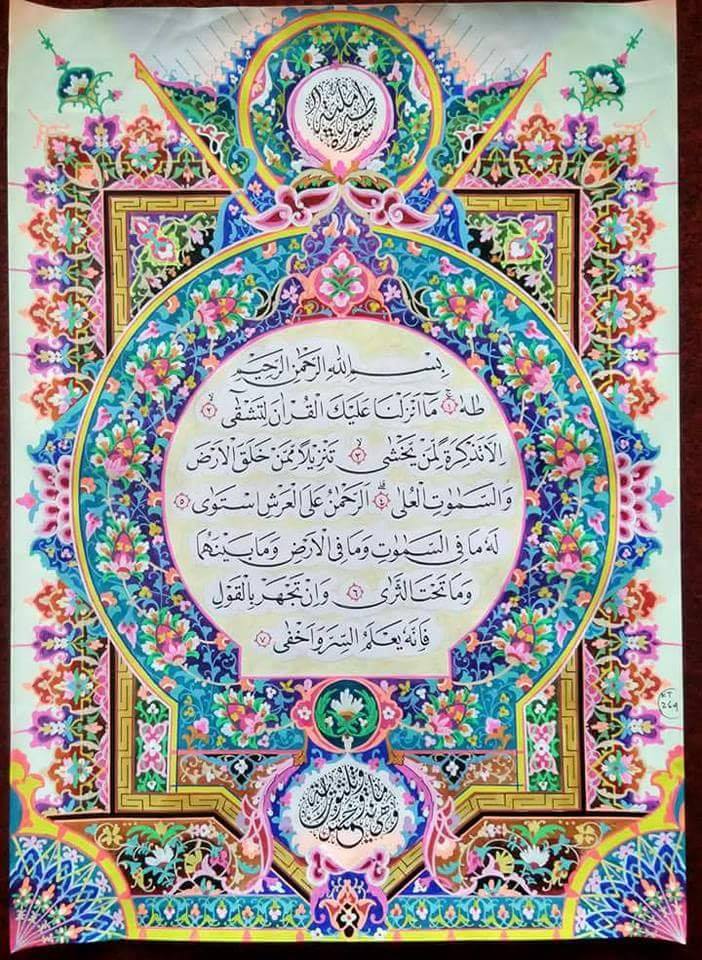 سورة طه مكية
بِسْمِ اللهِ الرَّحْمٰنِ الرَّحِيْمِ
طٰهٰ ۚ ١ مَآ اَنْزَلْنَا عَلَيْكَ الْقُرْاٰنَ لِتَشْقٰٓى ۙ ٢
اِلَّا تَذْكِرَةً لِّمَنْ يَّخْشٰى ۙ ٣ تَنْزِيْلًا مِّمَّنْ خَلَقَ الْاَرْضَ
وَالسَّمٰوٰتِ الْعُلٰى ۗ ٤ اَلرَّحْمٰنُ عَلَى الْعَرْشِ اسْتَوٰى ٥
لَهٗ مَا فِى السَّمٰوٰتِ وَمَا فِى الْاَرْضِ وَمَا بَيْنَهُمَا
وَمَا تَحْتَ الثَّرٰى ٦ وَاِنْ تَجْهَرْ بِالْقَوْلِ
فَاِنَّهٗ يَعْلَمُ السِّرَّ وَاَخْفٰى ٧
KT
269
وهي مائة وخمس وثلثون اية